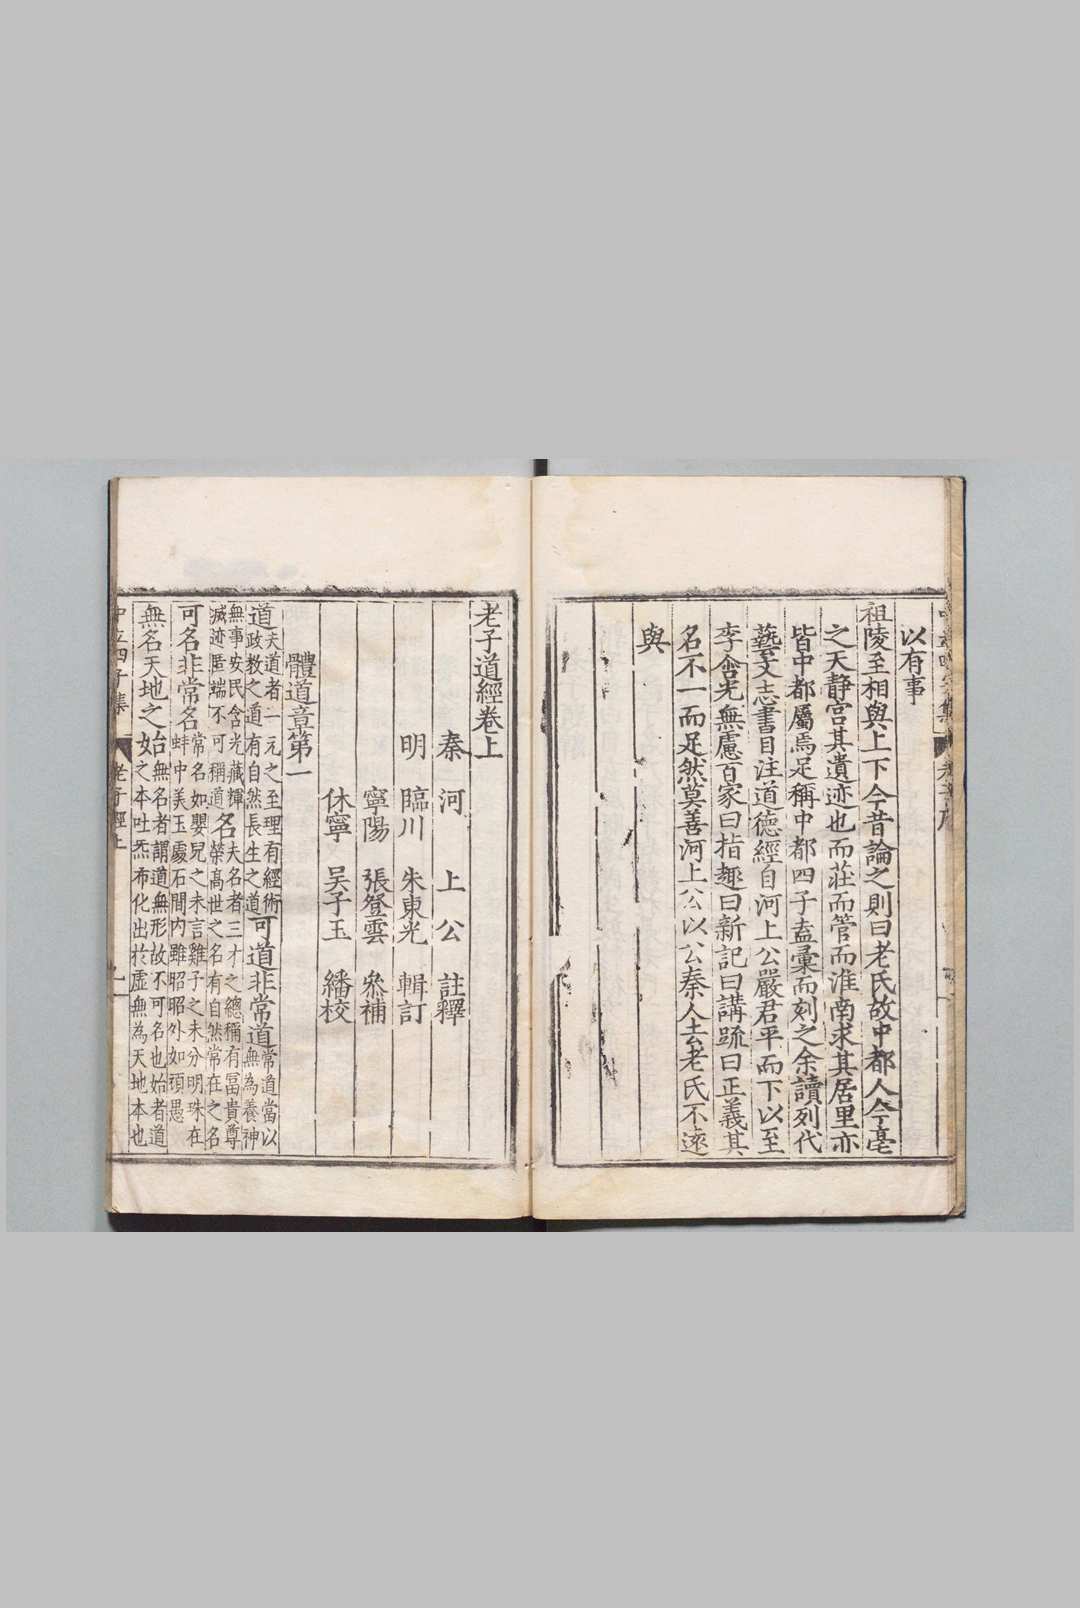 以有事
祖陵至相與上下今昔論之則曰老氏故中都人今亳
之天靜宮其遺迹也而莊而管而淮南求其居里亦
皆中都屬焉足稱中都四子盍彙而刻之余讀列代
藝文志書目注道德經自河上公嚴君平而下以至
李含光無慮百家曰指趣曰新記曰講疏曰正義其
名不一而足然莫善河上公以公秦人去老氏不遠
與
老子道經卷上
秦 河 上 公 註釋
明 臨川 朱東光 輯訂
寧陽 張登雲 叅補
休寧 吳子玉 繙校
體道章第一
道夫道者一元之至理有經術政教之道有自然長生之道可道非常道常道當以無為養神
無事安民含光藏輝滅迹匿端不可稱道名夫名者三才之總稱有冨貴尊榮高世之名有自然常在之名
可名非常名常名如嬰兒之未言雞子之未分明珠在蚌中美玉處石間内雖昭昭外如頑愚
無名天地之始無名者謂道無形故不可名也始者道之本吐炁布化出於虛無為天地本也
中立四子集 老子經上 一